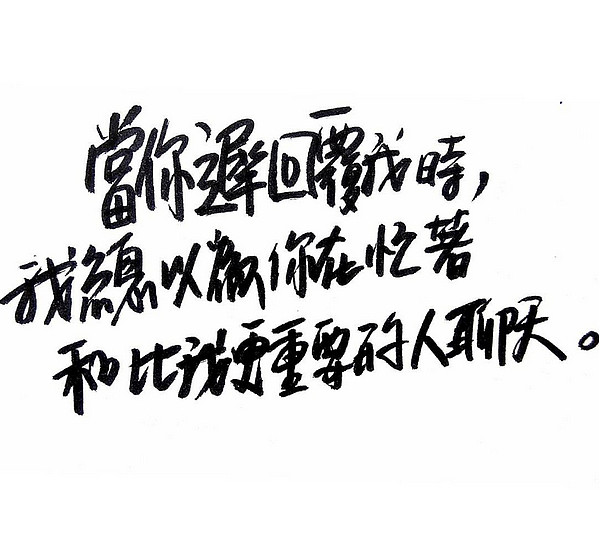 當你遲回覆我時，
我總以為你在忙著
和比我更重要的人聊天。